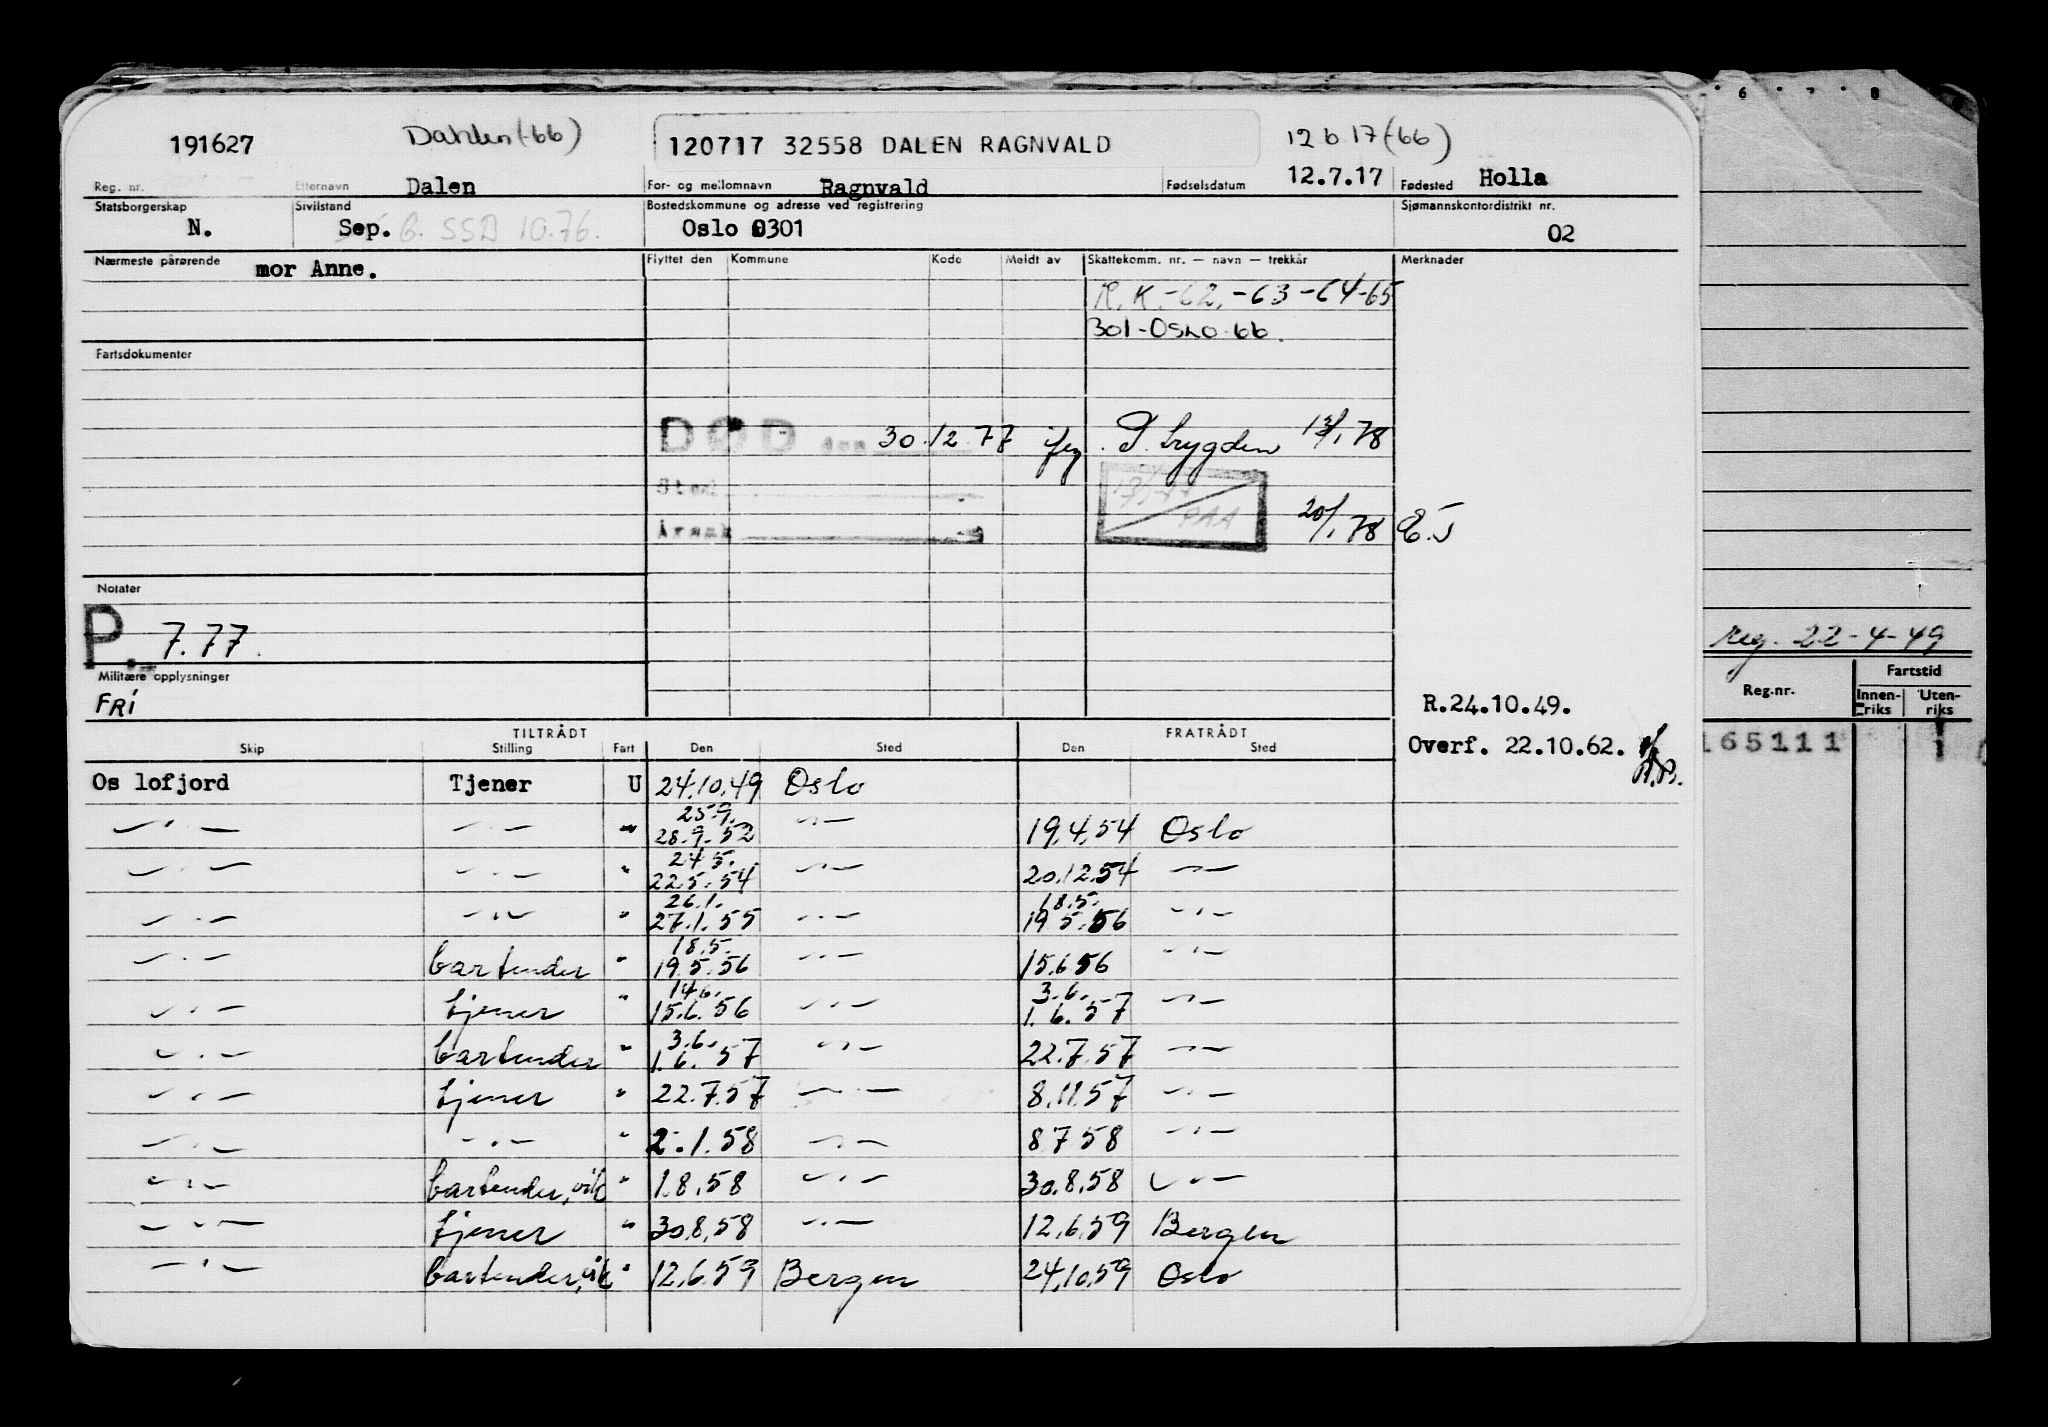 191627 Dahlen (-66) 120717 32558 DALEN RAGNVALD 12 6 17 (-66)
Reg. nr. Etternavn Dalen For- og mellomnavn Ragnvald Fødselsdatum 12.7.17 Fødested Holla
Statsborgerskap Sivilstand Bostedskommune og adresse ved registrering Sjømannskontordistrikt nr.
N. Sep. G. SSB 10.76. Oslo 0301 02
Nærmeste pårørende mor Anne. Flyttet den Kommune Kode Meldt av Skattekomm. nr. — navn — trekkår Merknader
R.K.-62,-63-64-65
301-OSLO-66.
Fartsdokumenter
DØD den 30.12.77 flg. P. trygden 13/1 78
Sted
Årsak 20/1 78 E.J
PAA
Notater
P. 7.77.
reg. 22-4-49
Militære opplysninger
FRI
R.24.10.49.
Reg.nr. Fartstid
Innenriks Utenriks
TILTRÅDT FRATRÅDT
Skip Stilling Fart Den Sted Den Sted
Overf. 22.10.62.
165111
Os lofjord Tjener U 24.10.49 Oslo
25.9.
—〃— —〃— " 28.9.52 —〃— 19.4.54 Oslo
24.5.
—〃— —〃— " 22.5.54 —〃— 20.12.54 —〃—
26.1. 18.5.
—〃— —〃— " 27.1.55 —〃— 19.5.56 —〃—
18.5.
—〃— bartender " 19.5.56 —〃— 15.6 56 —〃—
14.6. 3.6.
—〃— tjener " 15.6.56 —〃— 1.6.57 —〃—
3.6.
—〃— bartender " 1.6.57 —〃— 22.7.57 —〃—
—〃— tjener " 22.7.57 —〃— 8.11.57 —〃—
—〃— —〃— " 2.1.58 —〃— 8 7 58 —〃—
—〃— bartender, vik " 1.8.58 —〃— 30.8.58 —〃—
—〃— tjener " 30.8.58 —〃— 12.6.59 Bergen
—〃— bartender, vik " 12.6.59 Bergen 24.10.59 Oslo